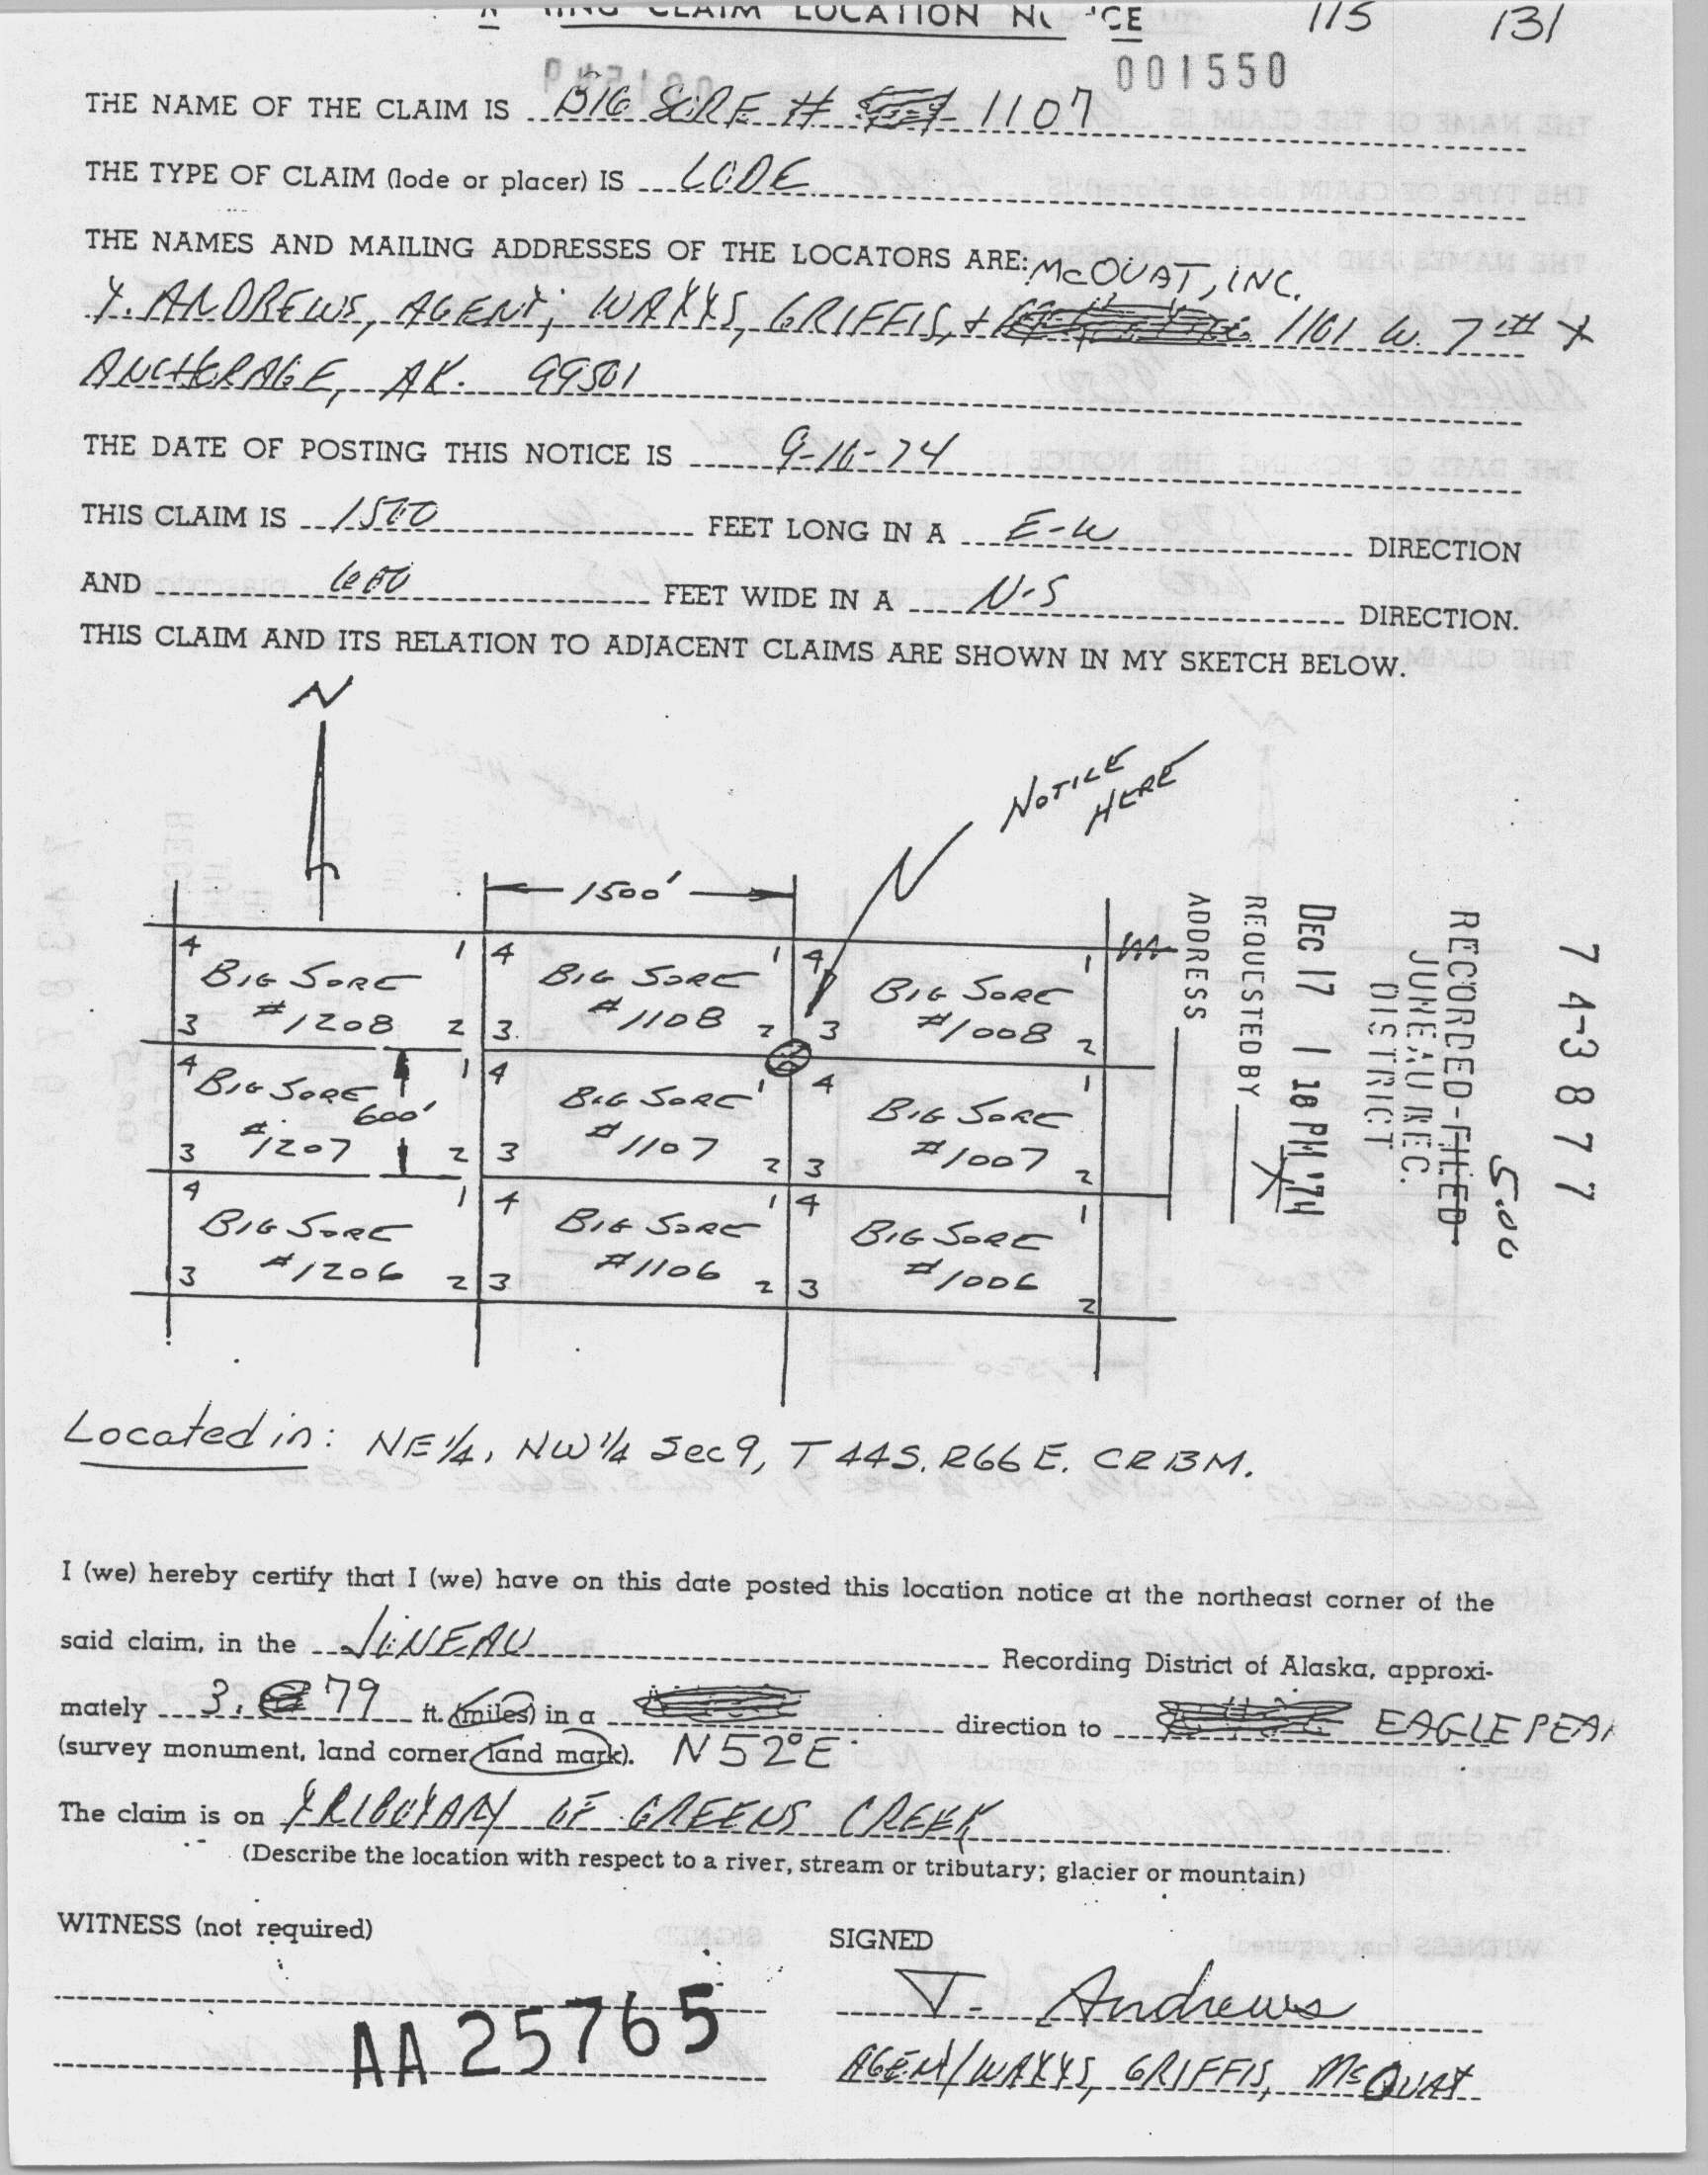 CLAIM LOCATION 115 131
001550
THE NAME OF THE CLAIM IS BIG SORE # 1107
THE TYPE OF CLAIM (lode or placer) IS LODE
THE NAMES AND MAILING ADDRESSES OF THE LOCATORS ARE: McQUAT, INC.
T. ANDREWS, AGENT; WATTS, GRIFFIS, + 1101 W. 7TH
ANCHORAGE, AK. 99501
THE DATE OF POSTING THIS NOTICE IS 9-16-74
THIS CLAIM IS 1500 FEET LONG IN A E-W DIRECTION
AND 600 FEET WIDE IN A N-S DIRECTION.
THIS CLAIM AND ITS RELATION TO ADJACENT CLAIMS ARE SHOWN IN MY SKETCH BELOW.
N
NOTICE
HERE
1500'
4 1 4 1 4 1
BIG SORE BIG SORE BIG SORE
#1208 #1108 #1008
3 2 3 2 3 2
4 1 4 1 4 1
BIG SORE BIG SORE BIG SORE
600'
#1207 #1107 #1007
3 2 3 2 3 2
4 1 4 1 4 1
BIG SORE BIG SORE BIG SORE
#1206 #1106 #1006
3 2 3 2 3 2
74-3877
5.00
RECORDED-FILED
JUNEAU REC.
DISTRICT
DEC 17 1 18 PM '74
REQUESTED BY
ADDRESS
Located in: NE 1/4, NW 1/4 Sec 9, T 44S. R66E. CRBM.
I (we) hereby certify that I (we) have on this date posted this location notice at the northeast corner of the
said claim, in the JUNEAU Recording District of Alaska, approxi-
mately 3. 79 ft. (miles) in a direction to EAGLE PEAK
(survey monument, land corner, land mark). N52°E
The claim is on TRIBUTARY OF GREENS CREEK
(Describe the location with respect to a river, stream or tributary; glacier or mountain)
WITNESS (not required) SIGNED
T. Andrews
AA 25765
AGENT/WATTS, GRIFFIS, McQUAT